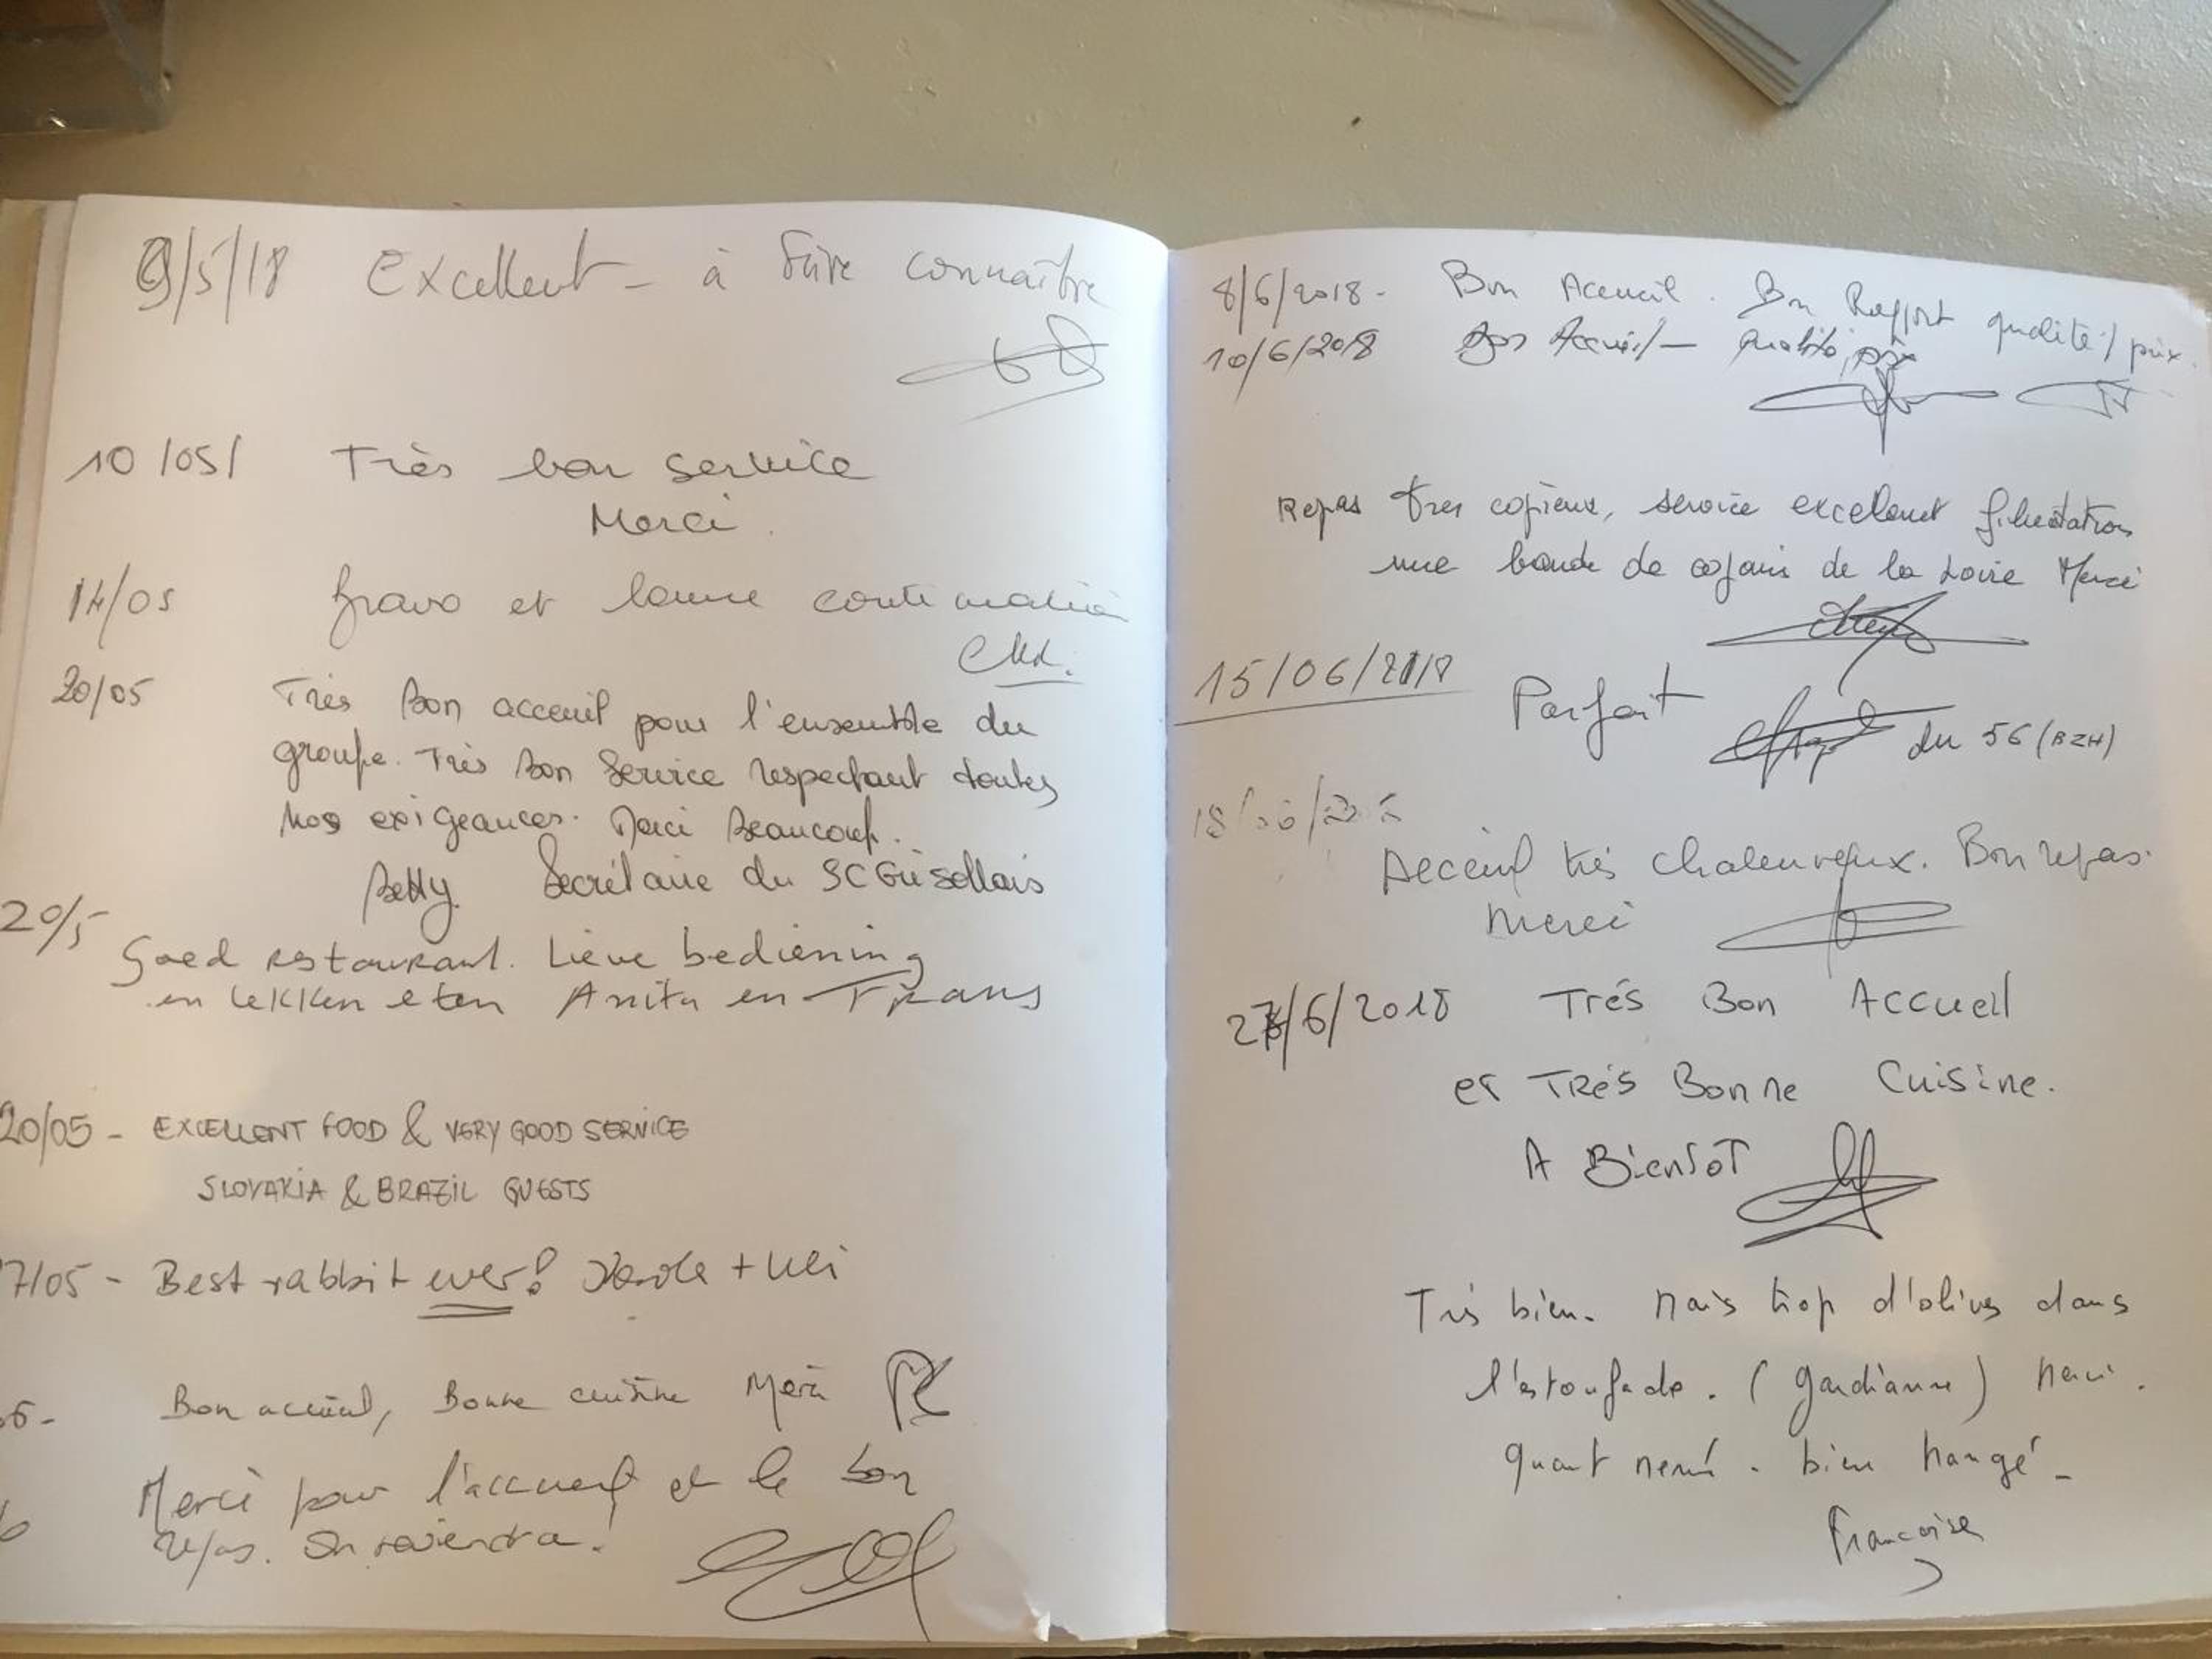 9/5/18 Excellent - à faire connaître
10/05/ Très bon service
Merci.
14/05 Bravo et bonne continuation
20/05 Très Bon acceuil pour l'ensemble du
groupe. Très Bon Service respectant toutes
nos exigeances. Merci Beaucoup.
Betty Secrétaire du SC Grisollais
20/5
Goed restaurant. Lieve bediening
en lekker eten Anita en Frans
20/05 - EXCELLENT FOOD & VERY GOOD SERVICE
SLOVAKIA & BRAZIL GUESTS
7/05 - Best rabbit ever! + Uli
Bon accueil, Bonne cuisine Merci
Merci pour l'accueil et le bon
repas. On reviendra!
8/6/2018 - Bon Accueil. Bon Rapport qualité/prix
10/6/2018 Bon Accueil - Qualité prix
Repas tres copieux, service excellent félicitations
une bande de copains de la Loire Merci
15/06/2018 Parfait
du 56 (BZH)
18/06/
Acceuil très chaleureux. Bon repas.
Merci
27/6/2018 Trés Bon Accueil
et Trés Bonne Cuisine.
A Bientot
Très bien. Mais trop d'olives dans
l'estoufade. (gardianne) Merci.
quant meme. bien mangé -
Francoise